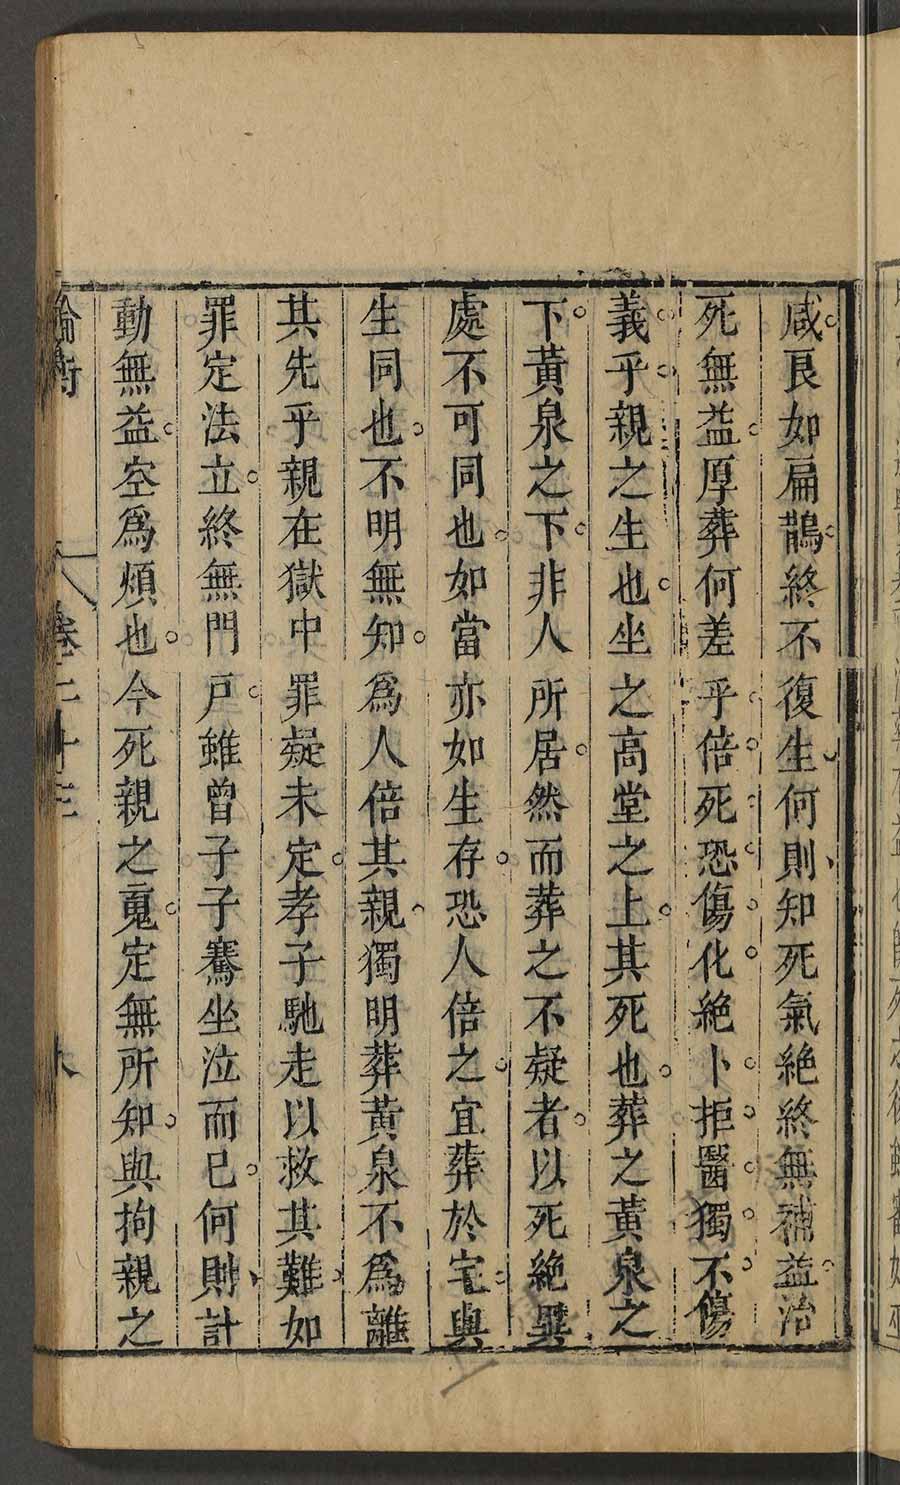 咸良如扁鵲終不復生何則知死氣絕終無補益治
死無益厚葬何差乎倍死恐傷化絕卜拒醫獨不傷
義乎親之生也坐之高堂之上其死也葬之黃泉之
下黃泉之下非人所居然而葬之不疑者以死絕異
處不可同也如當亦如生存恐人倍之宜葬於宅與
生同也不明無知爲人倍其親獨明葬黃泉不爲離
其先乎親在獄中罪疑未定孝子馳走以救其難如
罪定法立終無門戶雖曾子子騫坐泣而已何則計
動無益空爲煩也今死親之䰟定無所知與拘親之
論衡
卷二十三